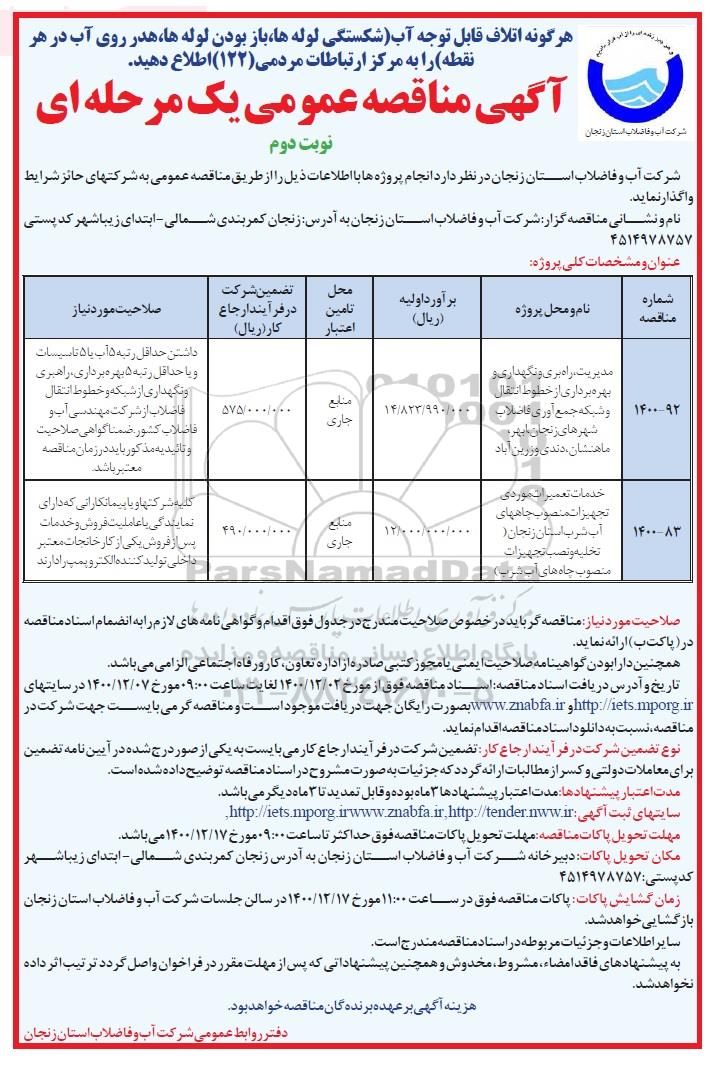 هرگونه اتلاف قابل توجه آب(شکستگی لوله ها،باز بودن لوله ها،هدر روی آب در هر
نقطه)را به مرکز ارتباطات مردمی(۱۲۲)اطلاع دهید.
آگهی مناقصه عمومی یک مرحله ای
نوبت دوم
شرکت آب و فاضلاب استان زنجان
شرکت آب و فاضلاب اســـتان زنجان در نظر دارد انجام پروژه ها با اطلاعات ذیل را از طریق مناقصه عمومی به شرکتهای حائز شرایط
واگذار نماید.
نام و نشـــانی مناقصه گزار: شرکت آب و فاضلاب اســـتان زنجان به آدرس: زنجان کمربندی شـــمالی - ابتدای زیباشهر کد پستی
۴۵۱۴۹۷۸۷۵۷
عنوان و مشخصات کلی پروژه:
شماره مناقصه
نام و محل پروژه
برآورد اولیه (ریال)
محل تامین اعتبار
تضمین شرکت در فرآیند ارجاع کار (ریال)
صلاحیت مورد نیاز
۱۴۰۰-۹۲
مدیریت، راه بری و نگهداری و
بهره برداری از خطوط انتقال
و شبکه جمع آوری فاضلاب
شهرهای زنجان، ابهر،
ماهنشان، دندی و زرین آباد
۱۴/۸۲۳/۹۹۰/۰۰۰
منابع جاری
۵۷۵/۰۰۰/۰۰۰
داشتن حداقل رتبه ۵ آب یا ۵ تاسیسات
و یا حداقل رتبه ۵ بهره برداری، راهبری
و نگهداری از شبکه و خطوط انتقال
فاضلاب از شرکت مهندسی آب و
فاضلاب کشور. ضمنا گواهی صلاحیت
و تائیدیه مذکور باید در زمان مناقصه
معتبر باشد.
۱۴۰۰-۸۳
خدمات تعمیرات موردی
تجهیزات منصوب چاههای
آب شرب استان زنجان (
تخلیه و نصب تجهیزات
منصوب چاه های آب شرب)
۱۲/۰۰۰/۰۰۰/۰۰۰
منابع جاری
۴۹۰/۰۰۰/۰۰۰
کلیه شرکتها و یا پیمانکارانی که دارای
نمایندگی یا عاملیت فروش و خدمات
پس از فروش یکی از کارخانجات معتبر
داخلی تولید کننده الکتروپمپ را دارند
ParsNamadData
پایگاه اطلاع رسانی مناقصه و مزایده
۰۲۱-۸۸۳۴۹۶۷۰-۵
صلاحیت مورد نیاز: مناقصه گر باید در خصوص صلاحیت مندرج در جدول فوق اقدام و گواهی نامه های لازم را به انضمام اسناد مناقصه
در (پاکت ب) ارائه نماید.
همچنین دارا بودن گواهینامه صلاحیت ایمنی یا مجوز کتبی صادره از اداره تعاون، کار و رفاه اجتماعی الزامی می باشد.
تاریخ و آدرس دریافت اسناد مناقصه: اســـناد مناقصه فوق از مورخ ۱۴۰۰/۱۲/۰۲ لغایت ساعت ۰۹:۰۰ مورخ ۱۴۰۰/۱۲/۰۷ در سایتهای
http://iets.mporg.ir و www.znabfa.ir بصورت رایگان جهت دریافت موجود اســـت و مناقصه گر می بایســـت جهت شرکت در
مناقصه، نسبت به دانلود اسناد مناقصه اقدام نماید.
نوع تضمین شرکت در فرآیند ارجاع کار: تضمین شرکت در فرآیند ارجاع کار می بایست به یکی از صور درج شده در آیین نامه تضمین
برای معاملات دولتی و کسر از مطالبات ارائه گردد که جزئیات به صورت مشروح در اسناد مناقصه توضیح داده شده است.
مدت اعتبار پیشنهادها: مدت اعتبار پیشنهادها ۳ ماه بوده و قابل تمدید تا ۳ ماه دیگر می باشد.
سایتهای ثبت آگهی: http://iets.mporg.irwww.znabfa.ir,http://tender.nww.ir,
مهلت تحویل پاکات مناقصه: مهلت تحویل پاکات مناقصه فوق حداکثر تا ساعت ۰۹:۰۰ مورخ ۱۴۰۰/۱۲/۱۷ می باشد.
مکان تحویل پاکات: دبیرخانه شـــرکت آب و فاضلاب اســـتان زنجان به آدرس زنجان کمربندی شـــمالی - ابتدای زیباشـــهر
کدپستی: ۴۵۱۴۹۷۸۷۵۷
زمان گشایش پاکات: پاکات مناقصه فوق در ســـاعت ۱۱:۰۰ مورخ ۱۴۰۰/۱۲/۱۷ در سالن جلسات شرکت آب و فاضلاب استان زنجان
بازگشایی خواهد شد.
سایر اطلاعات و جزئیات مربوطه در اسناد مناقصه مندرج است.
به پیشنهادهای فاقد امضاء، مشروط، مخدوش و همچنین پیشنهاداتی که پس از مهلت مقرر در فراخوان واصل گردد ترتیب اثر داده
نخواهد شد.
هزینه آگهی بر عهده برنده گان مناقصه خواهد بود.
دفتر روابط عمومی شرکت آب و فاضلاب استان زنجان